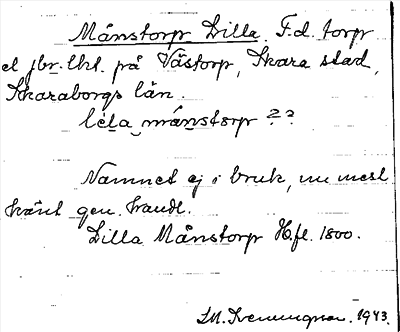 Månstorp Lilla. F.d. torp
el jbr.lht. på Västorp, Skara stad,
Skaraborgs län.
lila månstorp ??
Namnet ej i bruk, nu mest
känt gen. handl.
Lilla Månstorp H.fl. 1800.
1943.